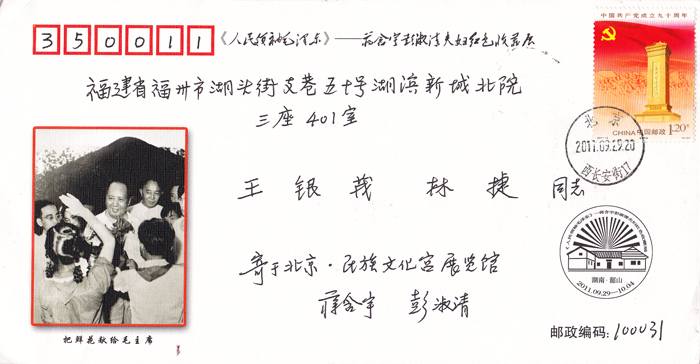 350011
《人民领袖毛泽东》——蒋含宇彭淑清夫妇红色收藏展
福建省福州市湖头街支巷五十号湖滨新城北院
三座401室
中国共产党成立九十周年
CHINA中国邮政 1.20元
北京
2011.09.29.20
西长安街17
王银茂 林捷 同志
寄于北京·民族文化宫展览馆
蒋含宇 彭淑清
湖南·韶山
2011.09.29—10.04
邮政编码:100031
把鲜花献给毛主席